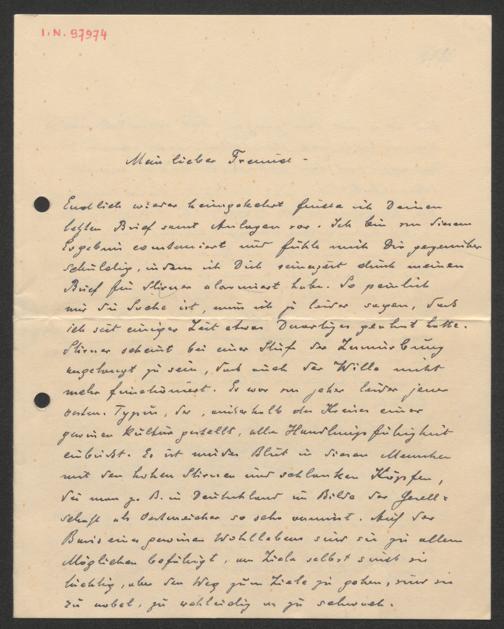 I.N. 97974
Mein lieber Freund –
Endlich wieder heimgekehrt finde ich Deinen
letzten Brief samt Anlagen vor. Ich bin von diesem
Ergebnis consterniert und fühle mich Dir gegenüber
schuldig, indem ich Dich seinerzeit durch meinen
Brief für Stirner alarmiert habe. So peinlich
mir die Sache ist, muss ich ja leider sagen, dass
ich seit einiger Zeit etwas Derartiges geahnt hatte.
Stirner scheint bei einer Stufe der Zermürbung
angelangt zu sein, dass auch der Wille nicht
mehr functioniert. Es war von jeher leider jener
österr. Typus, der, ausserhalb des Kreises einer
gewissen Kultur gestellt, alle Handlungsfähigkeit
einbüsst. Es ist müdes Blut in diesen Menschen
mit den hohen Stirnen und schlanken Köpfen,
die man z. B. in Deutschland im Bilde der Gesell-
schaft als Oesterreicher so sehr vermisst. Auf der
Basis eines gewissen Wohllebens sind sie zu allem
Möglichen befähigt, am Ziele selbst sind sie
tüchtig, aber den Weg zum Ziele zu gehen, sind sie
zu nobel, zu wehleidig u zu schwach.